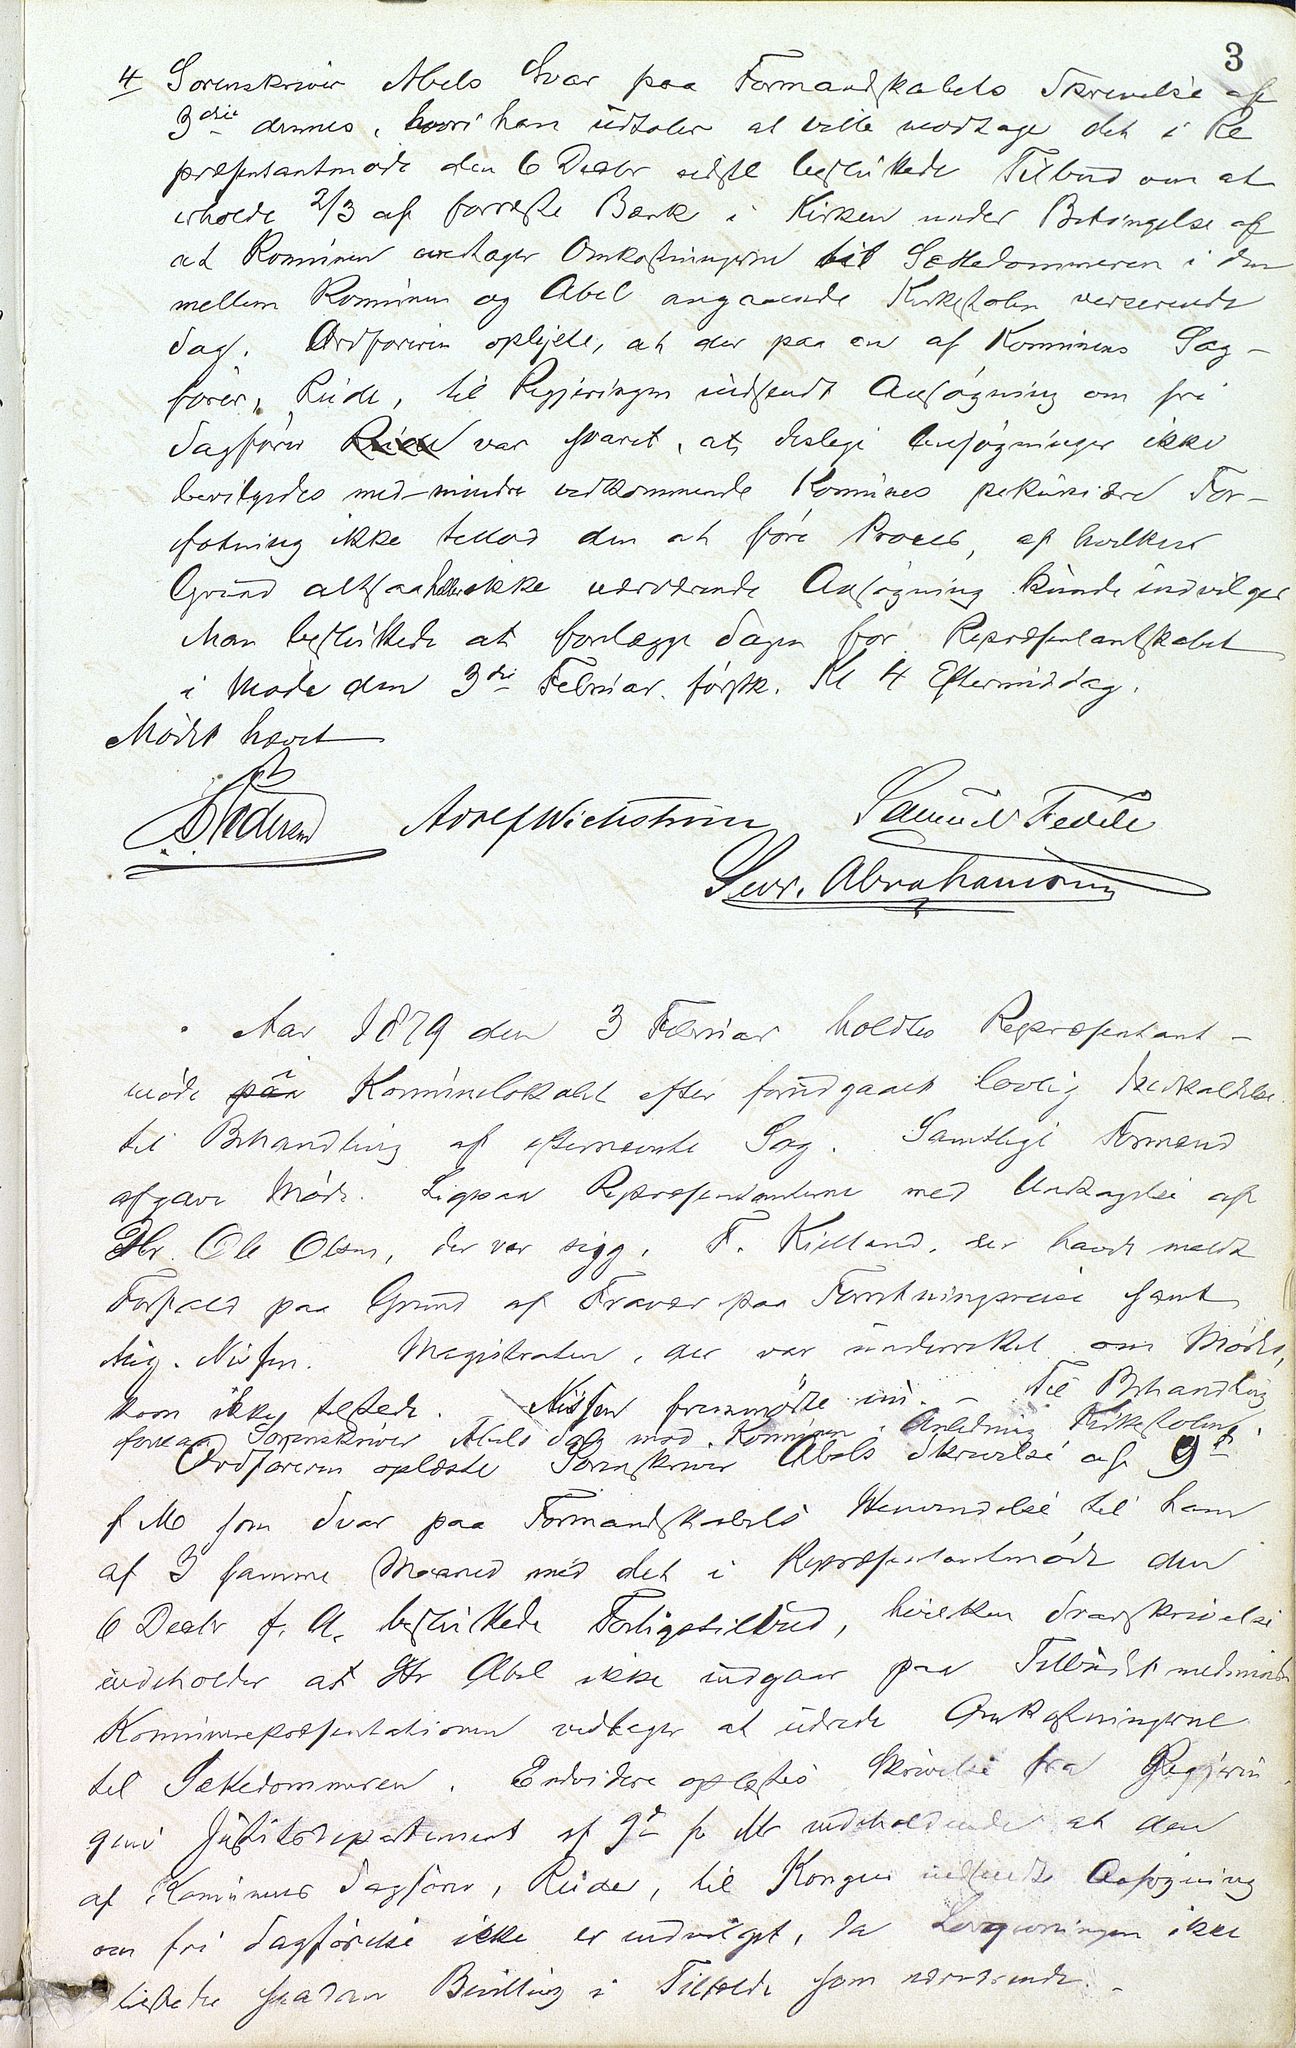 3
4 Sorenskriver Abels Svar paa Formandskabets Skrivelse af
3die dennes, hvori han udtaler at ville modtage det i Re
præsentantmøde den 6 Decbr sidstl besluttede Tilbud om at
erholde 2/3 af forreste Bænk i Kirken under Betingelse af
at Kommunen vedtager Omkostningerne til Sættedommeren i den
mellem Kommunen og Abel angaaende Kirkestolen verserende
Sag. Ordføreren oplyste, at der paa en af Kommunens Sag-
fører, Riide, til Regjeringen indsendt Ansøgning om fri
Sagfører var svaret, at deslige Ansøgninger ikke
bevilgedes med-mindre vedkommende Kommunes pekuniære For-
fatning ikke tillod den at føre Proces, af hvilken
Grund altsaa heller ikke nærværende Ansøgning kunde indvilges
Man besluttede at forelægge Sagen for Repræsentantskabet
i Møde den 3die Februar førstk. Kl 4 Eftermiddag.
Mødet hævet
Pedersen Adolf Wichstrøm Samuel Fedde
Sevr. Abrahamsen
Aar 1879 den 3 Februar holdtes Repræsentant-
møde paa i Kommunelokalet efter forudgaaet lovlig Indkaldelse
til Behandling af efternævnte Sag. Samtlige Formænd
afgave Møde. Ligesaa Repræsentanterne med Undtagelse af
DHr. Ole Olsen, der var syg, F. Kielland, der havde meldt
Forfald paa Grund af Fravær paa Forretningsreise samt
Aug. Nissen. Magistraten, der var underrettet om Mødet,
kom ikke tilstede. Nissen fremmødte nu. - Til Behandling
foretages Sorenskriver Abels Sag mod Kommunen i Anledning Kirkestolen.
Ordføreren oplæste Sorenskriver Abels Skrivelse af 9de
f M som Svar paa Formandskabets Henvendelse til ham
af 3 samme Maaned med det i Repræsentantmøde den
6 Decbr f. A. besluttede Forligstilbud, hvilken Svarskrivelse
indeholder at Hr Abel ikke indgaar paa Tilbudet medmindre
Kommunerepræsentationen vedtager at udrede Omkostningerne
til Sættedommeren. Endvidere oplæstes Skrivelse fra Regjerin
gens Justitsdepartement af f. M indeholdende at den
af Kommunens Sagfører, Riide, til Kongen indsendte Ansøgning
om fri Sagførelse ikke er indvilget, da Lovgivningen ikke
tilstede saadan Bevilling i Tilfælde som nærværende.